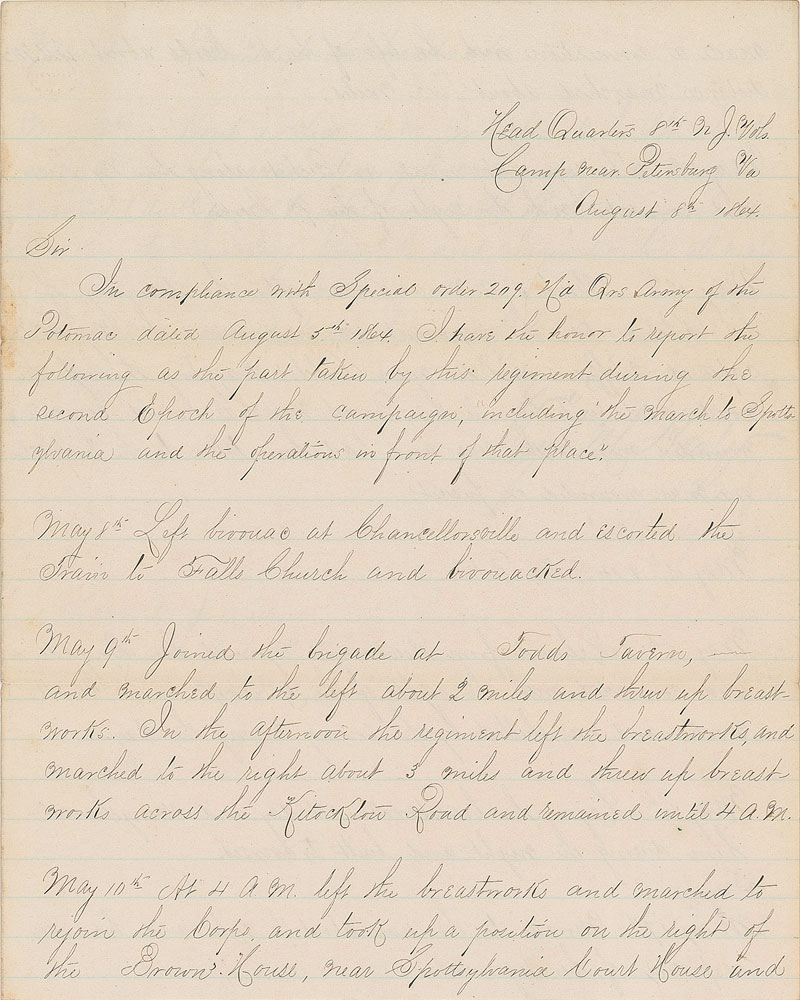 Head Quarters 8th N J. Vols.
Camp near Petersburg Va
August 8th 1864.
Sir
In compliance with Special order 209. Hd Qrs Army of the
Potomac dated August 5th 1864. I have the honor to report the
following as the part taken by this regiment during the
second Epoch of the campaign, "including the march to Spotts-
ylvania and the operations in front of that place".
May 8th Left bivouac at Chancellorsville and escorted the
Train to Falls Church and bivouacked.
May 9th Joined the brigade at Todds Tavern, —
and marched to the left about 2 miles and threw up breast-
works. In the afternoon the regiment left the breastworks, and
marched to the right about 3 miles and threw up breast-
works across the Road and remained until 4 A. M.
May 10th At 4 A M. left the breastworks and marched to
rejoin the Corps, and took up a position on the right of
the Brown House, near Spottsylvania Court House and